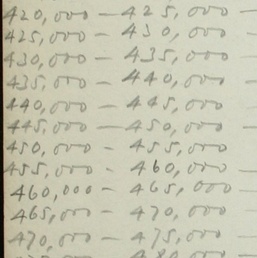 420,000 — 425,000 —
425,000 — 430,000 —
430,000 — 435,000 —
435,000 — 440,000 —
440,000 — 445,000 —
445,000 — 450,000 —
450,000 — 455,000 —
455,000 — 460,000 —
460,000 — 465,000 —
465,000 — 470,000 —
470,000 — 475,000 —